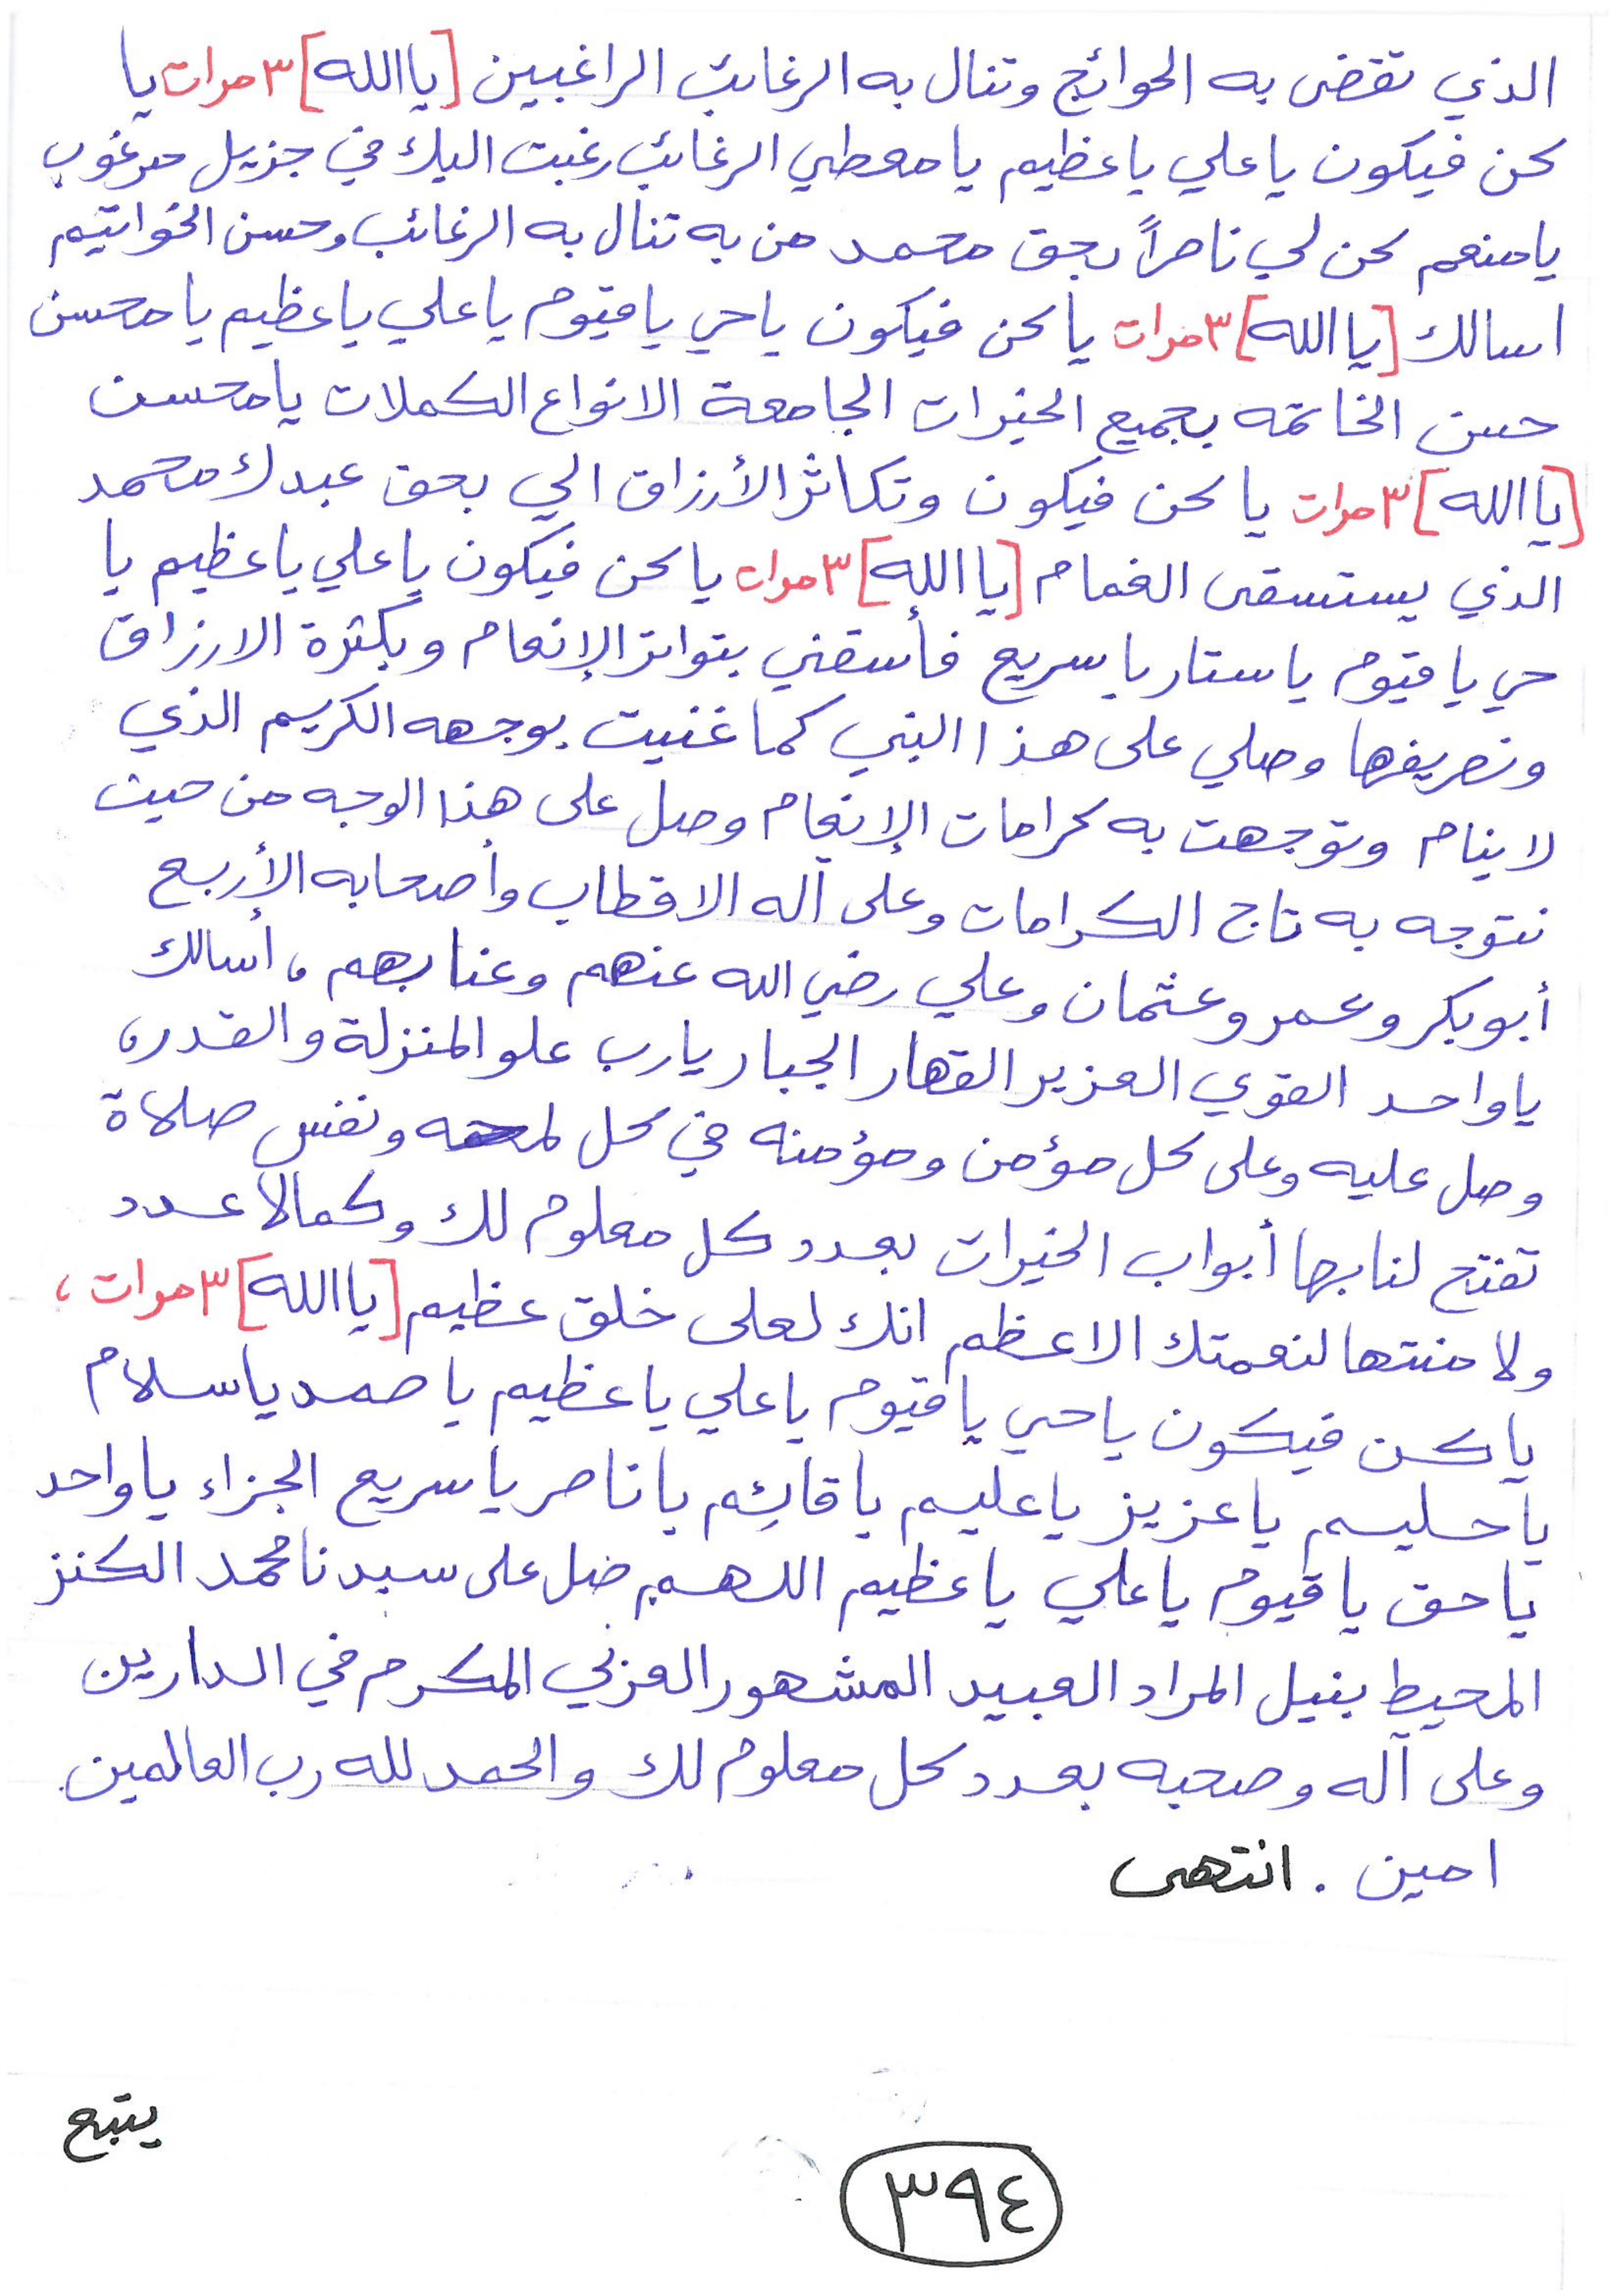 الذي تقضى به الحوائج وتنال به الرغائب الراغبين [يا الله] ٣ مرات يا
كن فيكون يا علي يا عظيم يا معطي الرغائب رغبت اليك في جزيل مرغوب
يا منعم كن لي ناصراً بحق محمد من به تنال به الرغائب وحسن الخواتيم
اسالك [يا الله] ٣ مرات يا كن فيكون يا حي يا قيوم يا علي يا عظيم يا محسن
حسن الخاتمه بجميع الخيرات الجامعة الانواع الكملات يا محسن
[يا الله] ٣ مرات يا كن فيكون وتكاثر الأرزاق الي بحق عبدك محمد
الذي يستسقى الغمام [يا الله] ٣ مرات يا كن فيكون يا علي يا عظيم يا
حي يا قيوم يا ستار يا سريع فأسقني بتواتر الإنعام وبكثرة الارزاق
وتصريفها وصلي على هذا النبي كما غنيت بوجهه الكريم الذي
لا ينام وتوجهت به كرامات الإنعام وصل على هذا الوجه من حيث
نتوجه به تاج الكرامات وعلى آله الاقطاب وأصحابه الأربع
أبو بكر وعمر وعثمان وعلي رضي الله عنهم وعنا بهم، أسالك
يا واحد القوي العزيز القهار الجبار يارب علو المنزلة والقدر،
وصل عليه وعلى كل مؤمن ومؤمنه في كل لمحه ونفس صلاة
تفتح لنا بها أبواب الخيرات بعدد كل معلوم لك وكمالا عدد
ولا منتها لنعمتك الاعظم انك لعلى خلق عظيم [يا الله] ٣ مرات،
يا كن فيكون يا حي يا قيوم يا علي يا عظيم يا صمد يا سلام
يا حليم يا عزيز يا عليم يا قائم يا ناصر يا سريع الجزاء يا واحد
يا حق يا قيوم يا علي يا عظيم اللهم صل على سيدنا محمد الكنز
المحيط بنيل المراد العبيد المشهور العزبي المكرم في الدارين
وعلى آله وصحبه بعدد كل معلوم لك والحمد لله رب العالمين.
امين. انتهى
يتبع
٣٩٤